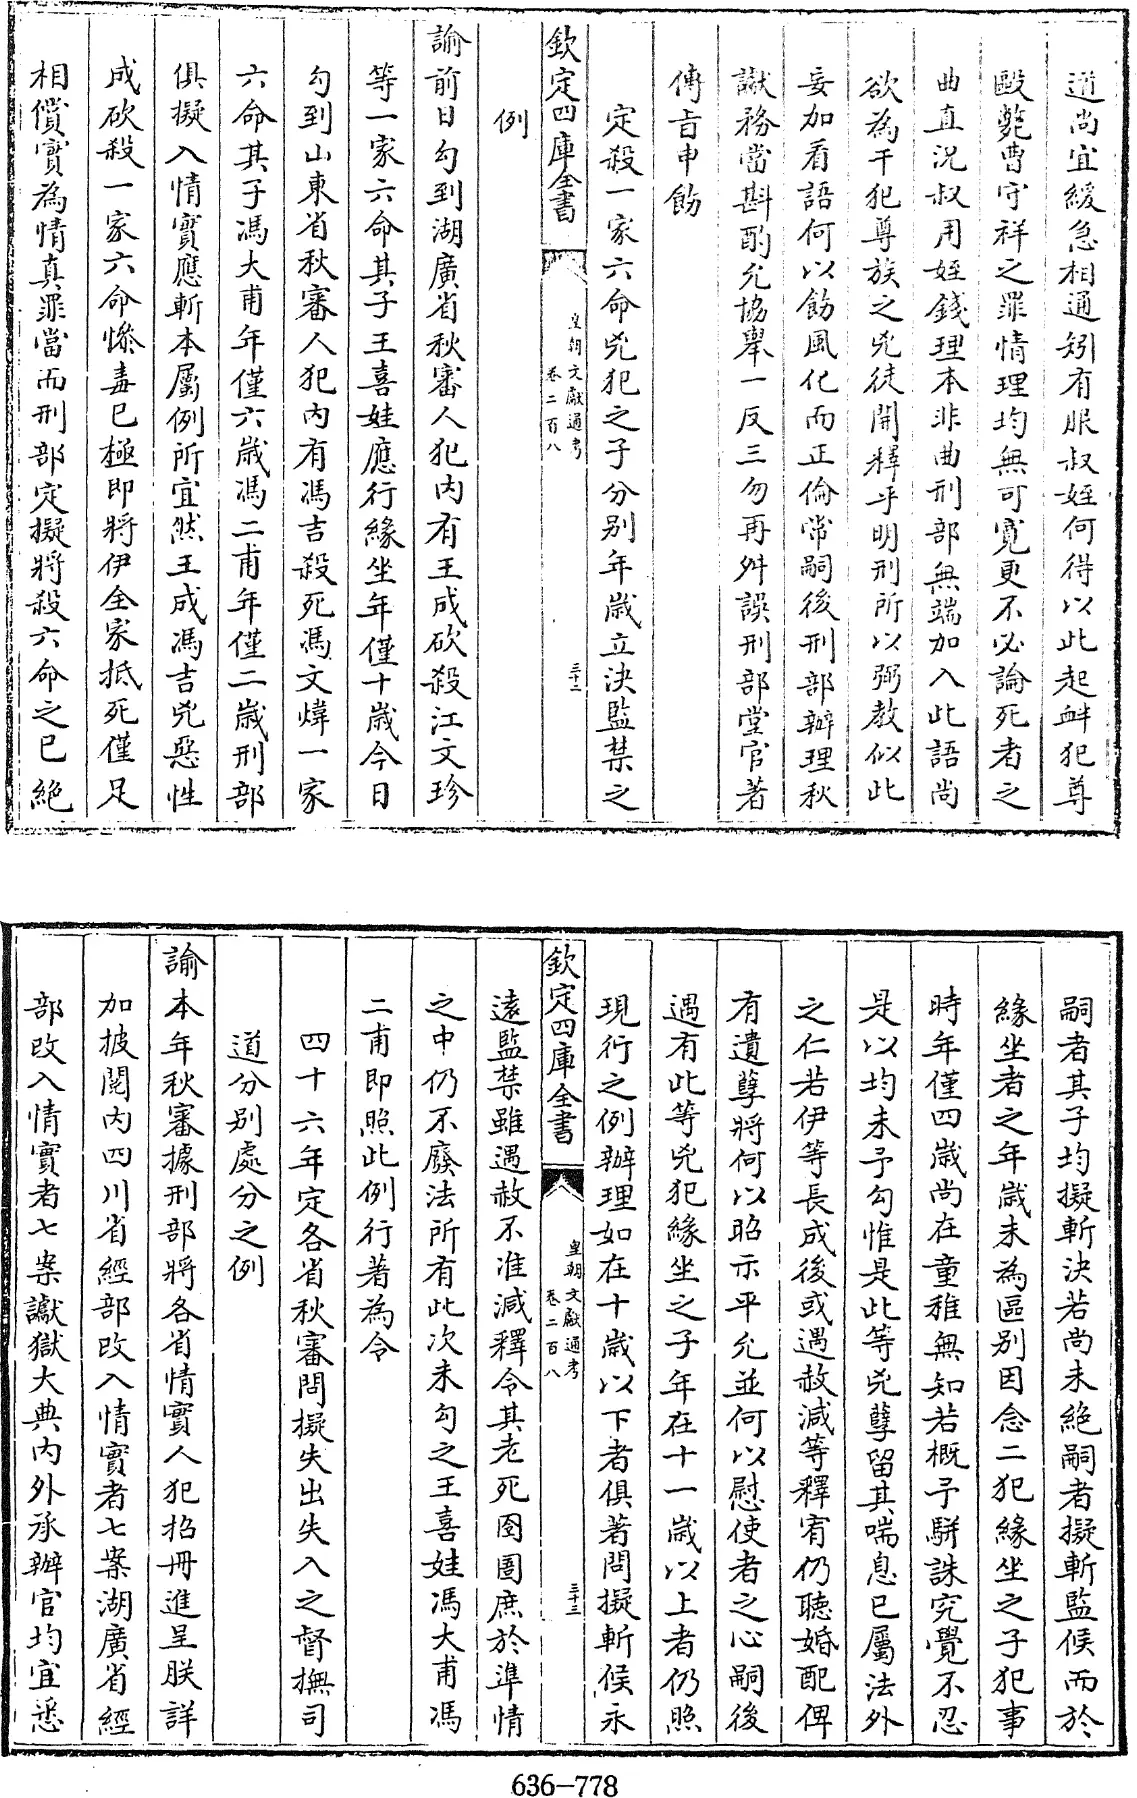 道尚宜緩急相通矧有服叔姪何得以此起衅犯尊
毆斃曹守祥之罪情理均無可寬更不必論死者之
曲直況叔用姪錢理本非曲刑部無端加入此語尚
欲為干犯尊族之兇徒開釋乎明刑所以弼教似此
妄加看語何以飭風化而正倫常嗣後刑部辦理秋
讞務當斟酌允協舉一反三勿再舛誤刑部堂官著
傳旨申飭
定殺一家六命兇犯之子分别年歲立決監禁之
欽定四庫全書
皇朝文獻通考
卷二百八
三十二
例
諭前日勾到湖廣省秋審人犯内有王成砍殺江文珍
等一家六命其子王喜娃應行緣坐年僅十歲今日
勾到山東省秋審人犯内有馮吉殺死馮文煒一家
六命其子馮大甫年僅六歲馮二甫年僅二歲刑部
俱擬入情實應斬本屬例所宜然王成馮吉兇惡性
成砍殺一家六命慘毒已極即將伊全家抵死僅足
相償實為情真罪當而刑部定擬將殺六命之已絶
嗣者其子均擬斬決若尚未絶嗣者擬斬監候而於
緣坐者之年歲未為區别因念二犯緣坐之子犯事
時年僅四歲尚在童稚無知若概予駢誅究覺不忍
是以均未予勾惟是此等兇孽留其喘息已屬法外
之仁若伊等長成後或遇赦減等釋宥仍聽婚配俾
有遺孽將何以昭示平允並何以慰使者之心嗣後
遇有此等兇犯緣坐之子年在十一歲以上者仍照
現行之例辦理如在十歲以下者俱著問擬斬候永
欽定四庫全書
皇朝文獻通考
卷二百八
三十三
遠監禁雖遇赦不准減釋令其老死囹圄庶於準情
之中仍不廢法所有此次未勾之王喜娃馮大甫馮
二甫即照此例行著為令
四十六年定各省秋審問擬失出失入之督撫司
道分别處分之例
諭本年秋審據刑部將各省情實人犯招冊進呈朕詳
加披閲内四川省經部改入情實者七案湖廣省經
部改入情實者七案讞獄大典内外承辦官均宜悉
636-778